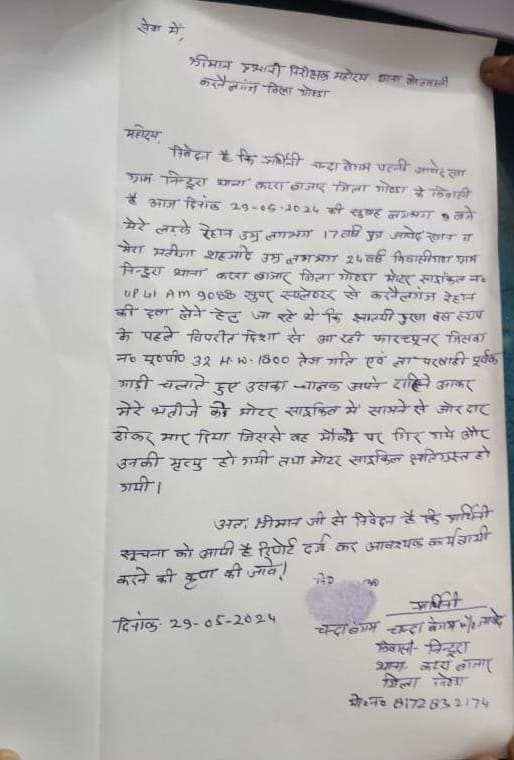 सेवा में,
श्रीमान प्रभारी निरीक्षक महोदय थाना कोतवाली
करनैलगंज जिला गोण्डा
महोदय,
निवेदन है कि प्रार्थिनी चन्दा बेगम पत्नी जावेद खान
ग्राम निन्दूरा थाना कटरा बाजार जिला गोण्डा के निवासी
है आज दिनांक 29-05-2024 को सुबह लगभग 9 बजे
मेरे लड़के रेहान उम्र लगभग 17 वर्ष पुत्र जावेद खान व
मेरा भतीजा शहजादे उम्र लगभग 24 वर्ष निवासीगण ग्राम
निन्दूरा थाना कटरा बाजार जिला गोण्डा मोटर साइकिल न०
UP 41 AM 9088 सुपर स्पलेण्डर से करनैलगंज रेहान
की दवा लेने हेतु जा रहे थे कि
के पहले विपरीत दिशा से आ रही फारच्यूनर जिसका
न० यू०पी० 32 H.W. 1800 तेज गति एवं लापरवाही पूर्वक
गाड़ी चलाते हुए उसका चालक अपने दाहिने आकर
मेरे भतीजे की मोटर साइकिल में सामने से जोरदार
ठोकर मार दिया जिससे वह मौके पर गिर गये और
उनकी मृत्यु हो गयी तथा मोटर साइकिल क्षतिग्रस्त हो
गयी।
अतः श्रीमान जी से निवेदन है कि प्रार्थिनी
सूचना को आयी है रिपोर्ट दर्ज कर आवश्यक कार्यवायी
करने की कृपा की जावे!
नि० अ०
प्रार्थिनी
दिनांक- 29-05-2024
चन्दा बेगम चन्दा बेगम w/o जावेद
निवासी- निन्दूरा
थाना- कटरा बाजार
जिला गोण्डा
मो०न० 8172832174